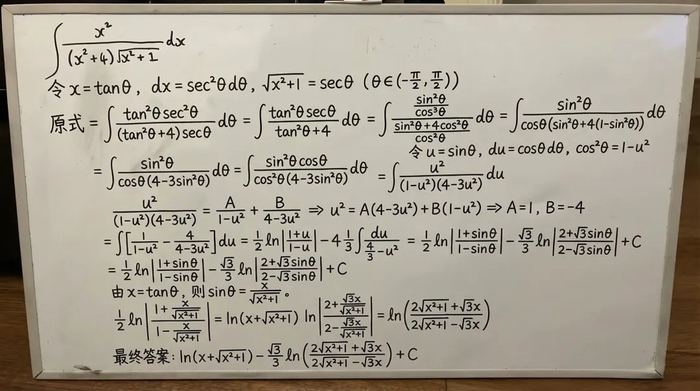 ∫ x²/((x²+4)√(x²+1)) dx
令 x=tanθ, dx=sec²θdθ, √(x²+1)=secθ (θ∈(-π/2, π/2))
原式=∫ (tan²θsec²θ)/((tan²θ+4)secθ) dθ = ∫ (tan²θsecθ)/(tan²θ+4) dθ = ∫ (sin²θ/cos³θ)/((sin²θ+4cos²θ)/cos²θ) dθ = ∫ sin²θ/(cosθ(sin²θ+4(1-sin²θ))) dθ
令 u=sinθ, du=cosθdθ, cos²θ=1-u²
=∫ sin²θ/(cosθ(4-3sin²θ)) dθ = ∫ (sin²θcosθ)/(cos²θ(4-3sin²θ)) dθ = ∫ u²/((1-u²)(4-3u²)) du
u²/((1-u²)(4-3u²)) = A/(1-u²) + B/(4-3u²) ⇒ u²=A(4-3u²)+B(1-u²) ⇒ A=1, B=-4
=∫[1/(1-u²) - 4/(4-3u²)]du = 1/2 ln|(1+u)/(1-u)| - 4 1/3 ∫ du/(4/3-u²) = 1/2 ln|(1+sinθ)/(1-sinθ)| - √3/3 ln|(2+√3sinθ)/(2-√3sinθ)| + C
=1/2 ln|(1+sinθ)/(1-sinθ)| - √3/3 ln|(2+√3sinθ)/(2-√3sinθ)| + C
由 x=tanθ, 则 sinθ= x/√(x²+1)。
1/2 ln|(1+x/√(x²+1))/(1-x/√(x²+1))| = ln(x+√(x²+1)) ln|(2+√3x/√(x²+1))/(2-√3x/√(x²+1))| = ln((2√(x²+1)+√3x)/(2√(x²+1)-√3x))
最终答案: ln(x+√(x²+1)) - √3/3 ln((2√(x²+1)+√3x)/(2√(x²+1)-√3x)) + C